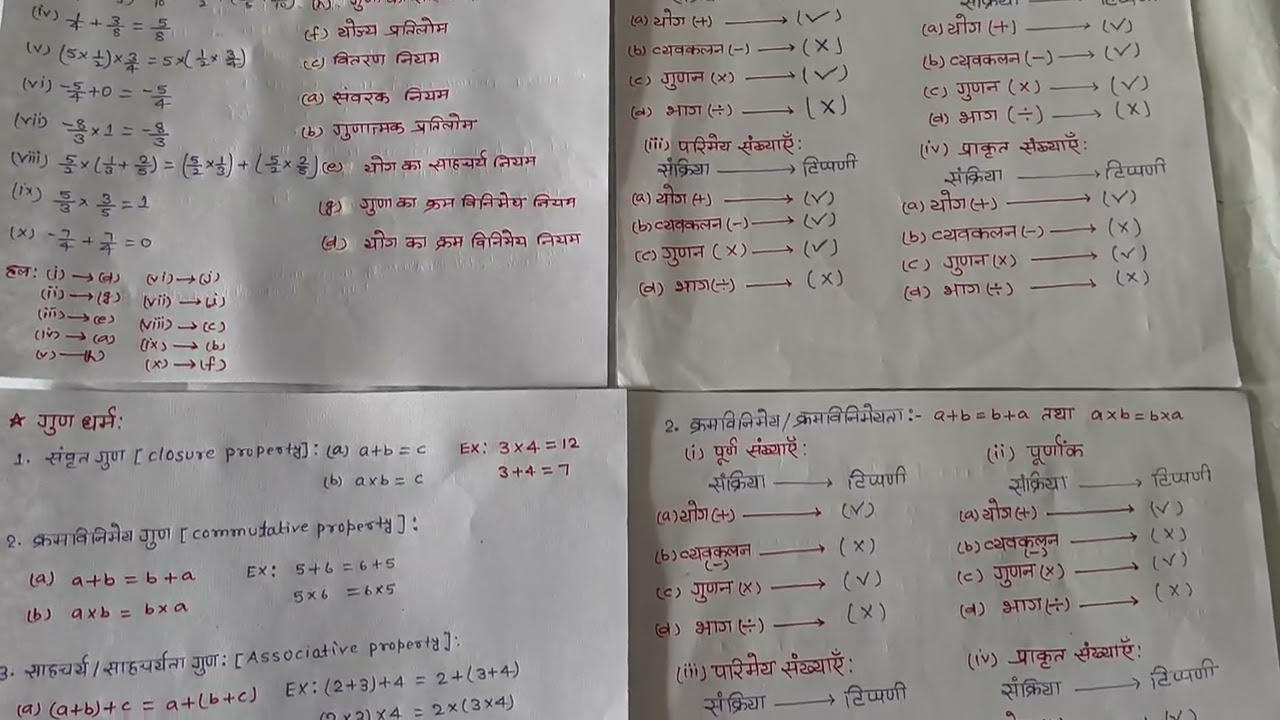 (iv) 1/4 + 3/8 = 5/8
(f) योज्य प्रतिलोम
(v) (5×1/2)×3/4 = 5×(1/2×3/4)
(c) वितरण नियम
(vi) -5/4+0 = -5/4
(a) संवरक नियम
(vii) -8/3×1 = -8/3
(b) गुणात्मक प्रतिलोम
(viii) 5/2×(1/3+2/5) = (5/2×1/3)+(5/2×2/5)
(e) योग का साहचर्य नियम
(ix) 5/3 × 3/5 = 1
(g) गुण का क्रम विनिमेय नियम
(x) -7/4 + 7/4 = 0
(d) योग का क्रम विनिमेय नियम
हल: (i) → (d) (vi) → (j)
(ii) → (g) (vii) → (i)
(iii) → (e) (viii) → (c)
(iv) → (a) (ix) → (b)
(v) → (h) (x) → (f)
(a) योग (+) → (✓)
(b) व्यवकलन (-) → (×)
(c) गुणन (×) → (✓)
(d) भाग (÷) → (×)
(iii) परिमेय संख्याएँ:
संक्रिया → टिप्पणी
(a) योग (+) → (✓)
(b) व्यवकलन (-) → (✓)
(c) गुणन (×) → (✓)
(d) भाग (÷) → (×)
संक्रिया → टिप्पणी
(a) योग (+) → (✓)
(b) व्यवकलन (-) → (✓)
(c) गुणन (×) → (✓)
(d) भाग (÷) → (×)
(iv) प्राकृत संख्याएँ:
संक्रिया → टिप्पणी
(a) योग (+) → (✓)
(b) व्यवकलन (-) → (×)
(c) गुणन (×) → (✓)
(d) भाग (÷) → (×)
☆ गुण धर्म:
1. संवृत गुण [closure property]: (a) a+b = c EX: 3×4 = 12
(b) a×b = c 3+4 = 7
2. क्रमविनिमेय गुण [commutative property]:
(a) a+b = b+a EX: 5+6 = 6+5
(b) a×b = b×a 5×6 = 6×5
3. साहचर्य/साहचर्यता गुण: [Associative property]:
(a) (a+b)+c = a+(b+c) EX: (2+3)+4 = 2+(3+4)
(2×3)×4 = 2×(3×4)
2. क्रमविनिमेय/क्रमविनिमेयता:- a+b=b+a तथा a×b=b×a
(i) पूर्ण संख्याएँ:
संक्रिया → टिप्पणी
(a) योग (+) → (✓)
(b) व्यवकलन (-) → (×)
(c) गुणन (×) → (✓)
(d) भाग (÷) → (×)
(iii) परिमेय संख्याएँ:
संक्रिया → टिप्पणी
(ii) पूर्णांक
संक्रिया → टिप्पणी
(a) योग (+) → (✓)
(b) व्यवकलन (-) → (×)
(c) गुणन (×) → (✓)
(d) भाग (÷) → (×)
(iv) प्राकृत संख्याएँ:
संक्रिया → टिप्पणी